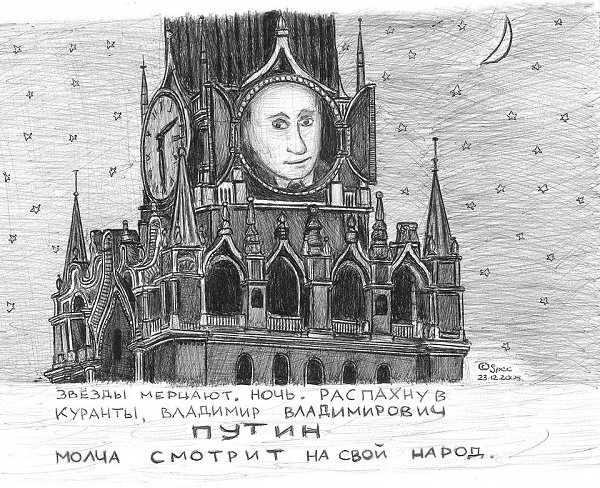 ©Spec
23.12.2005
ЗВЁЗДЫ МЕРЦАЮТ. НОЧЬ. РАСПАХНУВ
КУРАНТЫ, ВЛАДИМИР ВЛАДИМИРОВИЧ
ПУТИН
МОЛЧА СМОТРИТ НА СВОЙ НАРОД.